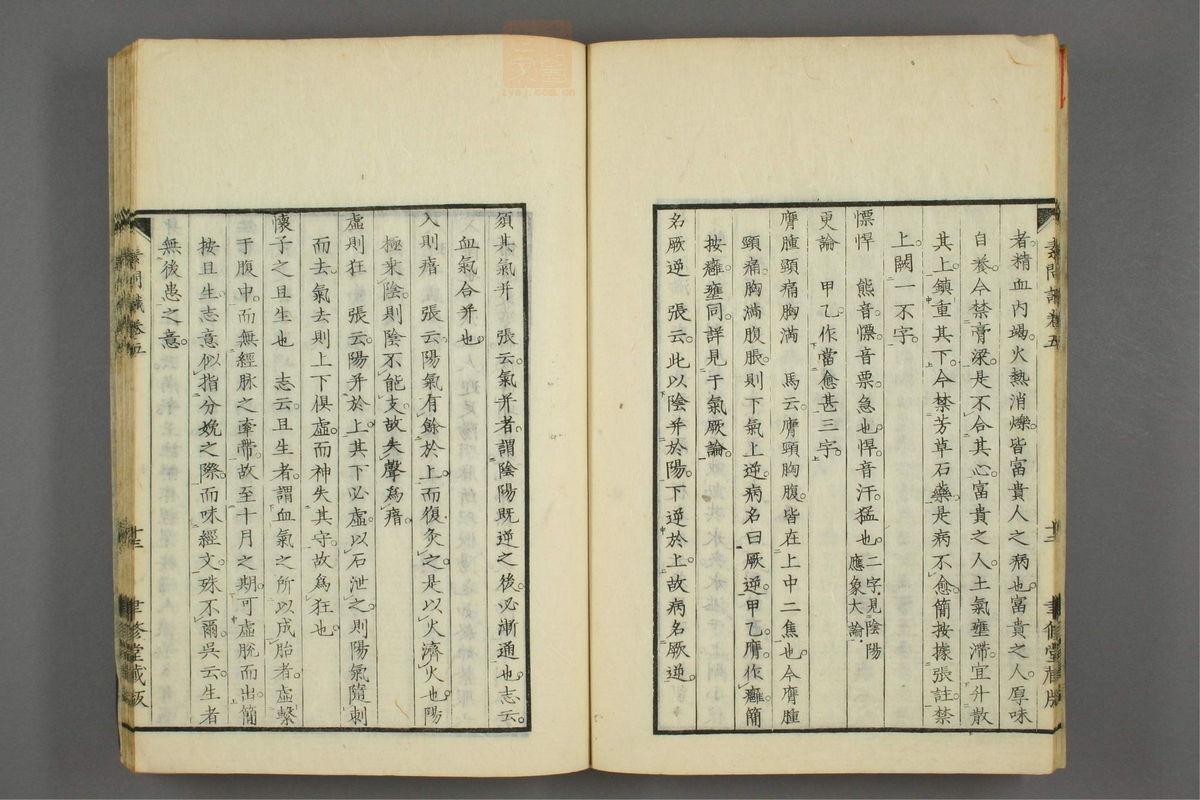 者。精血內竭。火熱消爍。皆富貴人之病也。富貴之人。厚味
自養。今禁膏梁。是不合其心。富貴之人。土氣壅滯。宜升散
其上。鎮重其下。今禁芳草石藥。是病不愈。簡按據張註。禁
上闕一不字。
慓悍 熊音。慓。音票。急也。悍。音汗。猛也。二字見陰陽應象大論。
更論 甲乙作當愈甚三字。
膺腫頸痛胸滿 馬云。膺頸胸腹。皆在上中二焦也。今膺腫
頸痛。胸滿腹脹。則下氣上逆。病名曰厥逆。甲乙。膺作癰。簡
按癰壅同。詳見于氣厥論。
名厥逆 張云。此以陰并於陽。下逆於上。故病名厥逆。
素問識卷五
十二
聿修堂藏版
須其氣并 張云。氣并者。謂陰陽既逆之後。必漸通也。志云。
血氣合并也。
入則瘖 張云。陽氣有餘於上。而復灸之。是以火濟火也。陽
極乘陰。則陰不能支。故失聲為瘖。
虛則狂 張云。陽并於上。其下必虛。以石泄之。則陽氣隨刺
而去。氣去則上下俱虛。而神失其守。故為狂也。
懷子之且生也 志云。且生者。謂血氣之所以成胎者。虛繫
于腹中。而無經脉之牽帶。故至十月之期。可虛脫而出。簡
按且生。志意似指分娩之際。而味經文。殊不爾。吳云。生者
無後患之意。
素問識卷五
十三
聿修堂藏版